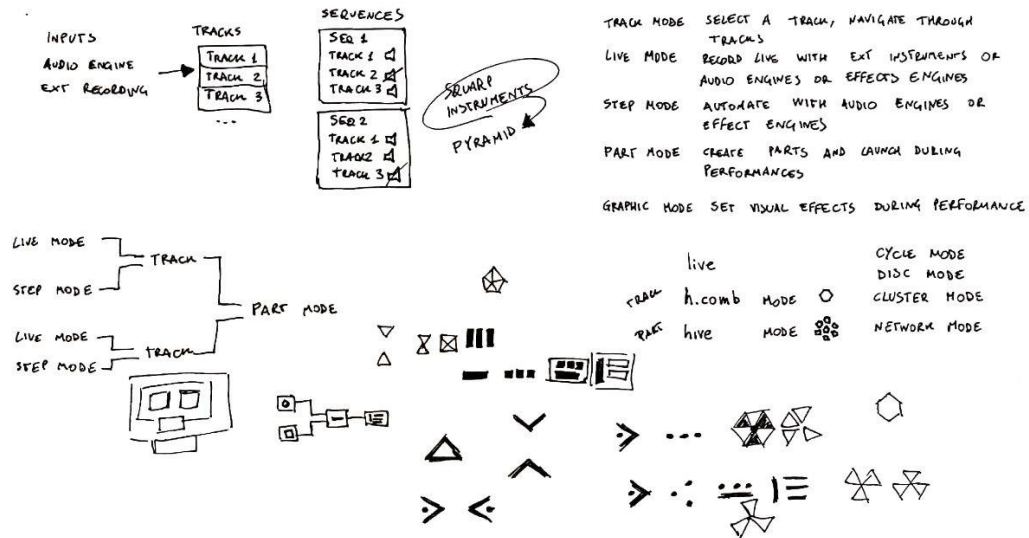 INPUTS
AUDIO ENGINE
EXT RECORDING
TRACKS
TRACK 1
TRACK 2
TRACK 3
...
SEQUENCES
SEQ 1
TRACK 1
TRACK 2
TRACK 3
SEQ 2
TRACK 1
TRACK 2
TRACK 3
SQUARP
INSTRUMENTS
PYRAMID
TRACK MODE SELECT A TRACK, NAVIGATE THROUGH
TRACKS
LIVE MODE RECORD LIVE WITH EXT INSTRUMENTS OR
AUDIO ENGINES OR EFFECTS ENGINES
STEP MODE AUTOMATE WITH AUDIO ENGINES OR
EFFECT ENGINES
PART MODE CREATE PARTS AND LAUNCH DURING
PERFORMANCES
GRAPHIC MODE SET VISUAL EFFECTS DURING PERFORMANCE
LIVE MODE
STEP MODE
TRACK
LIVE MODE
STEP MODE
TRACK
PART MODE
live
TRACK h.comb MODE
PART hive MODE
CYCLE MODE
DISC MODE
CLUSTER MODE
NETWORK MODE